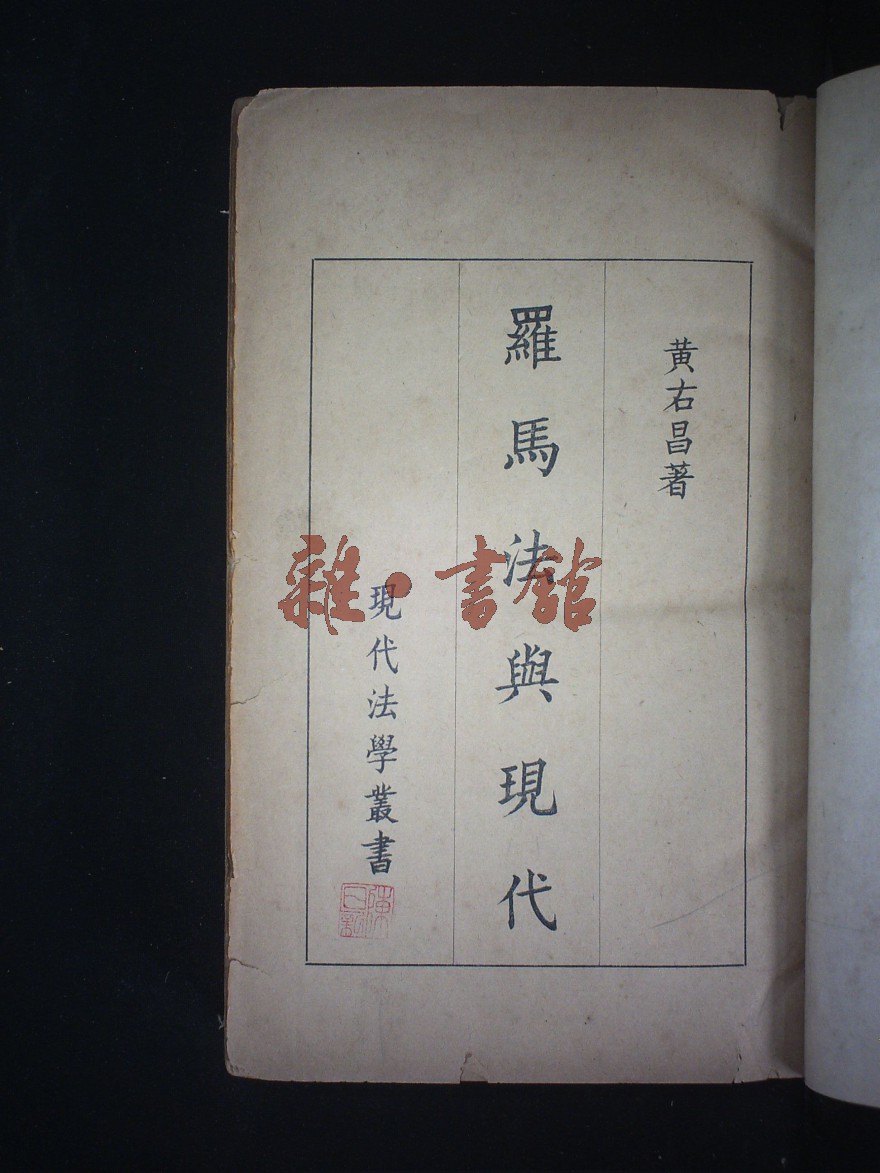 黄右昌著
羅馬法與現代
現代法學叢書
雜·書館